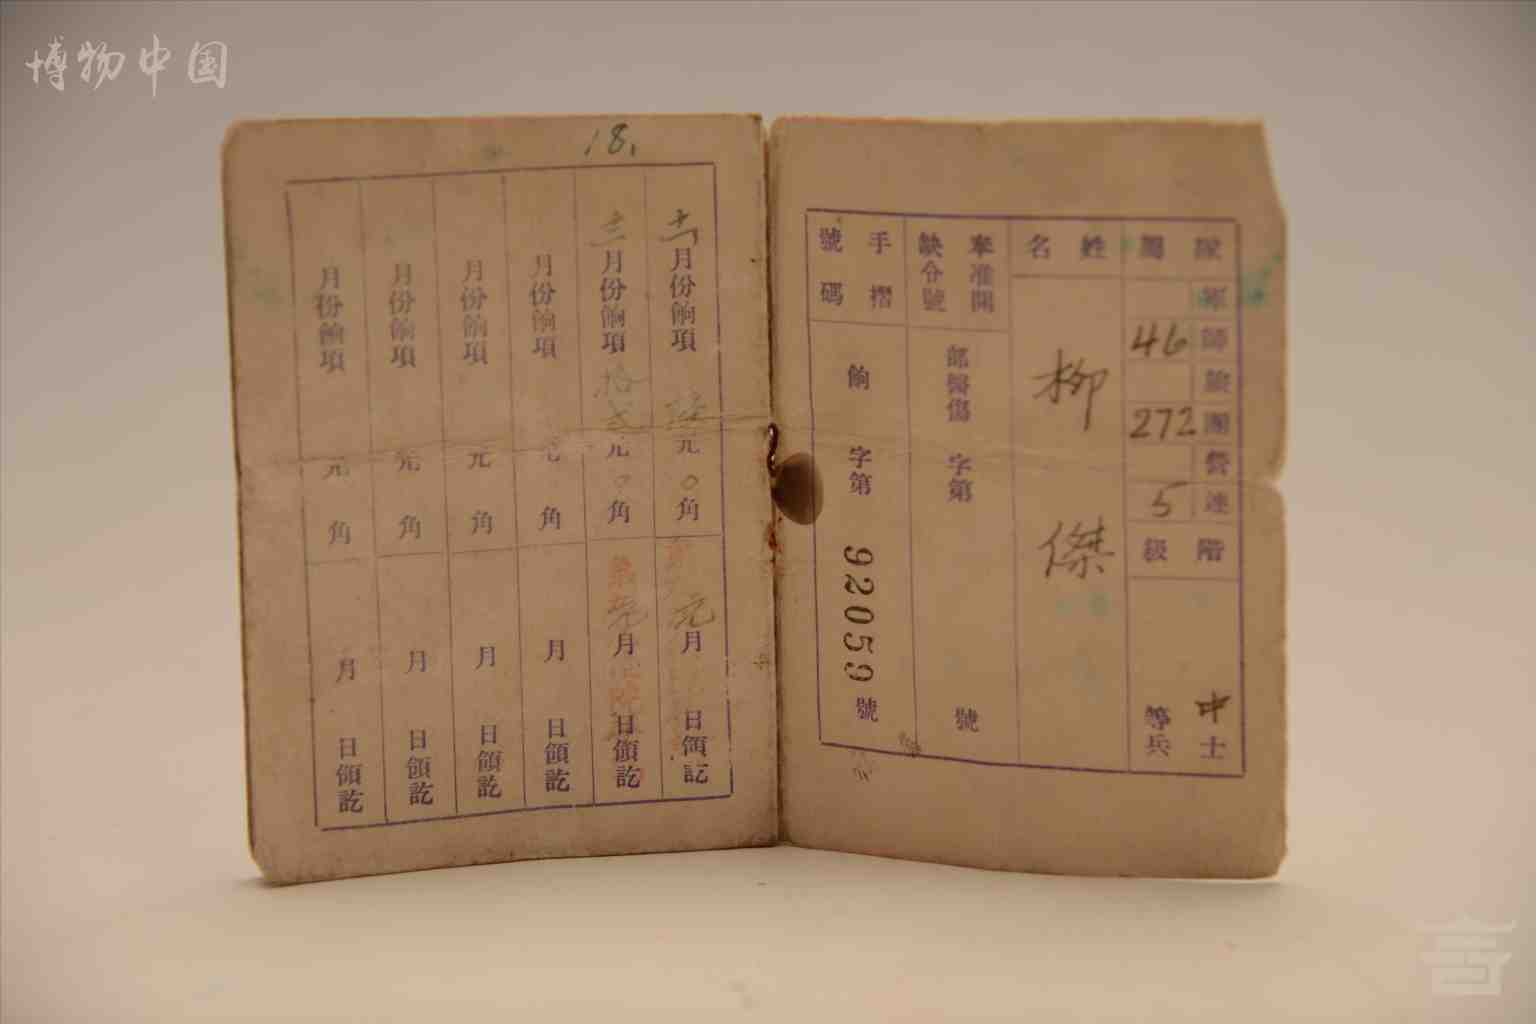 博物中国
隊屬
軍
46師
旅
272團
營
5連
階級
中士
等兵
姓名
柳傑
奉准開缺令號
部醫傷字第號
手摺號碼
餉字第92059號
18.
十一月份餉項 元〇角 元月 日領訖
三月份餉項拾弍元〇角 元月 日領訖
月份餉項 元 角 月 日領訖
月份餉項 元 角 月 日領訖
月份餉項 元 角 月 日領訖
月份餉項 元 角 月 日領訖